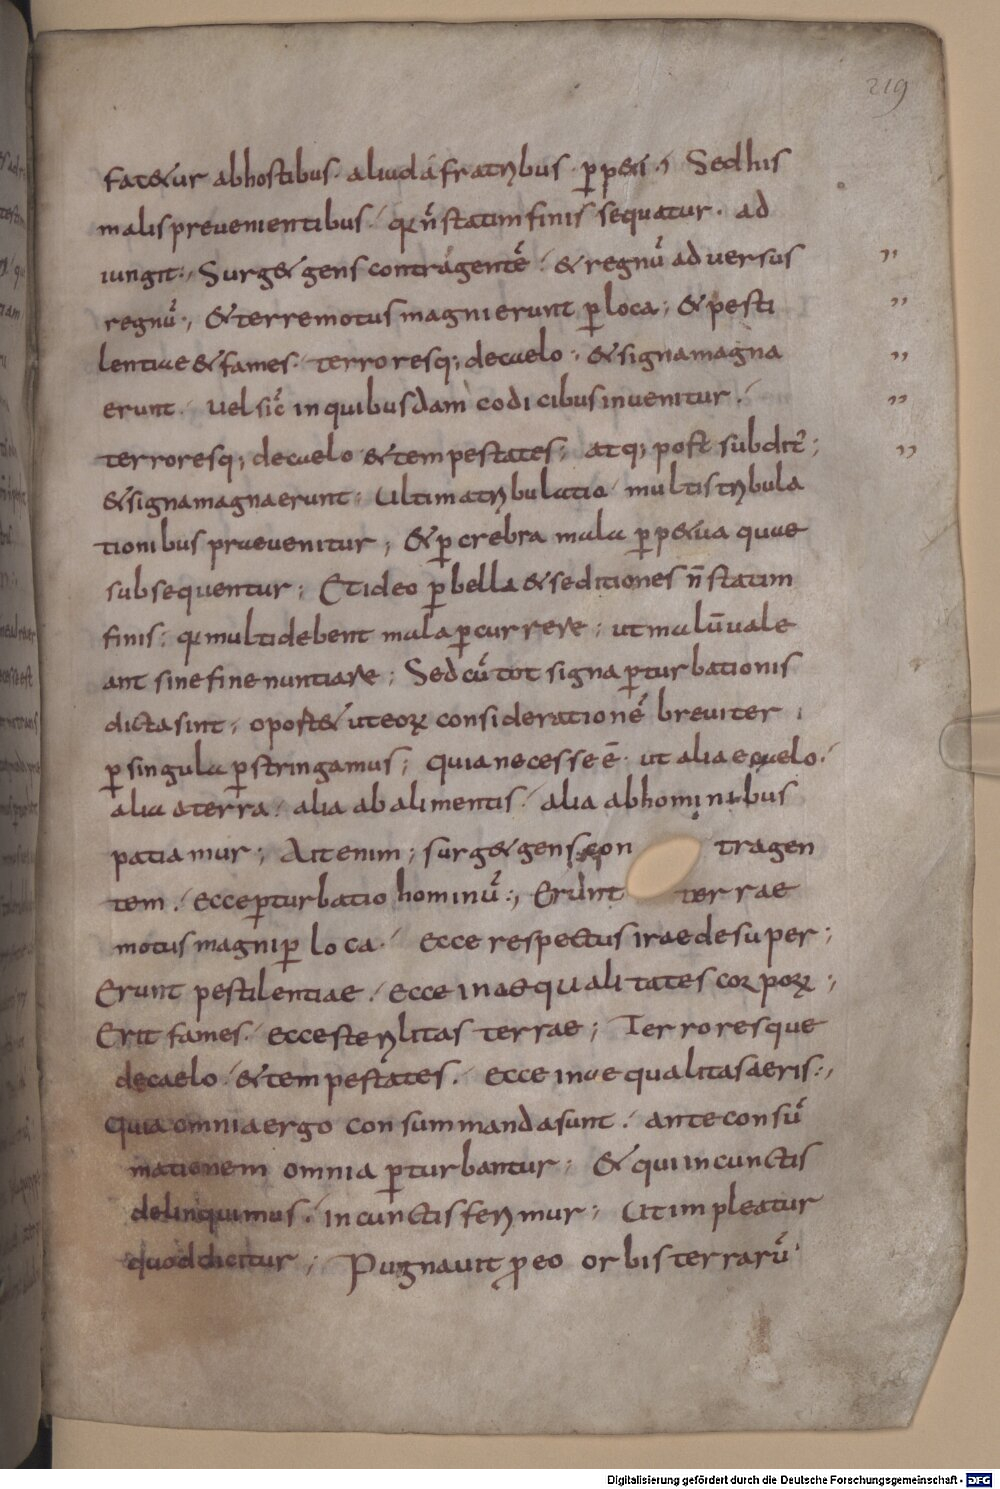 219
fat&ur abhostibus· aliud áfratribus· ꝑp&i·, Sedhis
malispreuenientibus· qꝛ n̄ statimfinis sequatur· ad
iungit·, Surg& gens contrágentē· & regnū aduersus
regnū·, &terremotus magnierunt ꝑloca; &pesti
lentiae &fames· terroresq; decaelo; &signamagna
erunt· uelsic̄ inquibusdam codicibusinuenitur·
terroresq; decaelo &tempestates; atq; post subdit̄;
&signamagnaerunt; Ultimatribulatio multistribula
tionibus praeuenitur; &ꝑcrebra mala ꝑp&ua quae
subsequentur; Etideo ꝑbella &seditiones n̄ statim
finis; qꝛ multidebent mala ꝑcurrere; utmalū uale
ant sinefinenuntiare; Sedcū tot signa ꝑturbationis
dictasint, oport& uteoꝝ considerationē breuiter
ꝑsingula ꝑstringamus; quianecesseē· ut aliaecaelo·
alia aterra· alia ab alimentis· alia abhominibus
patiamur; Aitenim; surg&gens con tragen
tem· ecceꝑturbatio hominū·, Erunt terrae
motus magniꝑ loca· ecce respectus iraedesuper;
Erunt pestilentiae· ecce inaequalitates corporꝝ;
Erit fames· eccesterilitas terrae; Terroresque
decaelo· &tempestates· ecce inaequalitasaeris·,
Quia omniaergo consummandasunt· anteconsū
mationem omnia ꝑturbantur; &quiincunctis
delinquimus· incunctisferimur; Utimpleatur
quoddicitur; Pugnauit ꝓeo orbisterrarū
Digitalisierung gefördert durch die Deutsche Forschungsgemeinschaft - DFG